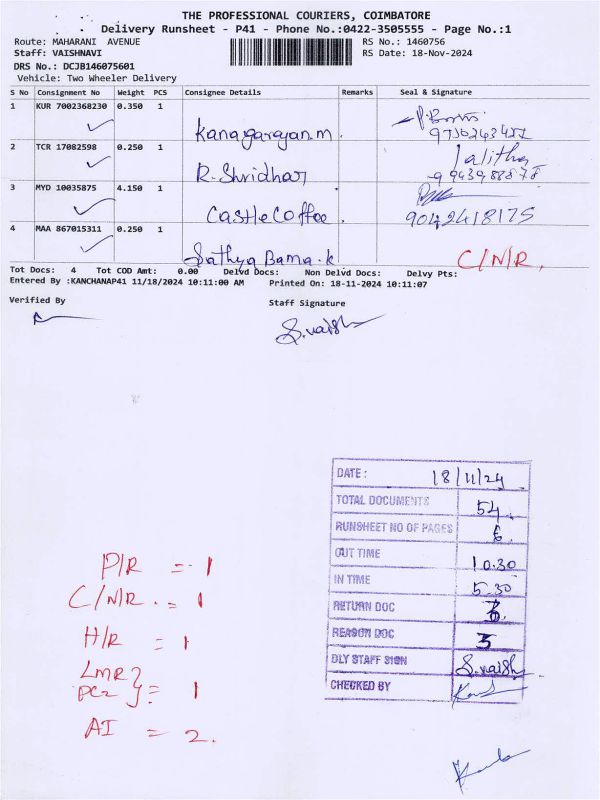 THE PROFESSIONAL COURIERS, COIMBATORE
Delivery Runsheet - P41 - Phone No.:0422-3505555 - Page No.:1
Route: MAHARANI AVENUE RS No.: 1460756
Staff: VAISHNAVI RS Date: 18-Nov-2024
DRS No.: DCJB146075601
Vehicle: Two Wheeler Delivery
S No Consignment No Weight PCS Consignee Details Remarks Seal & Signature
1 KUR 7002368230 0.350 1
Kanagarajan.m
2 TCR 17082598 0.250 1 Lalitha
R.Shridhar
3 MYD 10035875 4.150 1
Castle Coffee 9042418175
4 MAA 867015311 0.250 1
Sathya Bama.k C/N/R.
Tot Docs: 4 Tot COD Amt: 0.00 Delvd Docs: Non Delvd Docs: Delvy Pts:
Entered By :KANCHANAP41 11/18/2024 10:11:00 AM Printed On: 18-11-2024 10:11:07
Verified By Staff Signature
S.vaish
DATE: 18/11/24
TOTAL DOCUMENTS 54
RUNSHEET NO OF PAGES 6
OUT TIME 10.30
IN TIME 5.30
RETURN DOC
REASON DOC
DLY STAFF SIGN S.vaish
CHECKED BY
P/R = 1
C/N/R. = 1
H/R = 1
LMR }
PC2 } = 1
AI = 2.